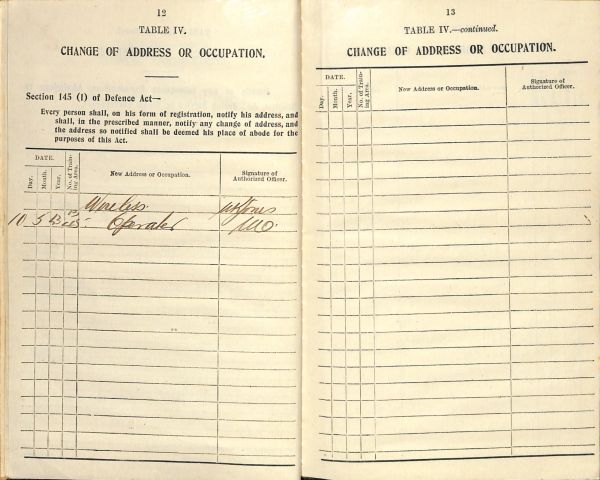 12
TABLE IV.
CHANGE OF ADDRESS OR OCCUPATION.
Section 145 (1) of Defence Act—
Every person shall, on his form of registration, notify his address, and
shall, in the prescribed manner, notify any change of address, and
the address so notified shall be deemed his place of abode for the
purposes of this Act.
DATE.
Day.
Month.
Year.
No. of Train-
ing Area.
New Address or Occupation.
Signature of
Authorized Officer.
Wireless
10 5 Operator
13
TABLE IV.—continued.
CHANGE OF ADDRESS OR OCCUPATION.
DATE.
Day.
Month.
Year.
No. of Train-
ing Area.
New Address or Occupation.
Signature of
Authorized Officer.